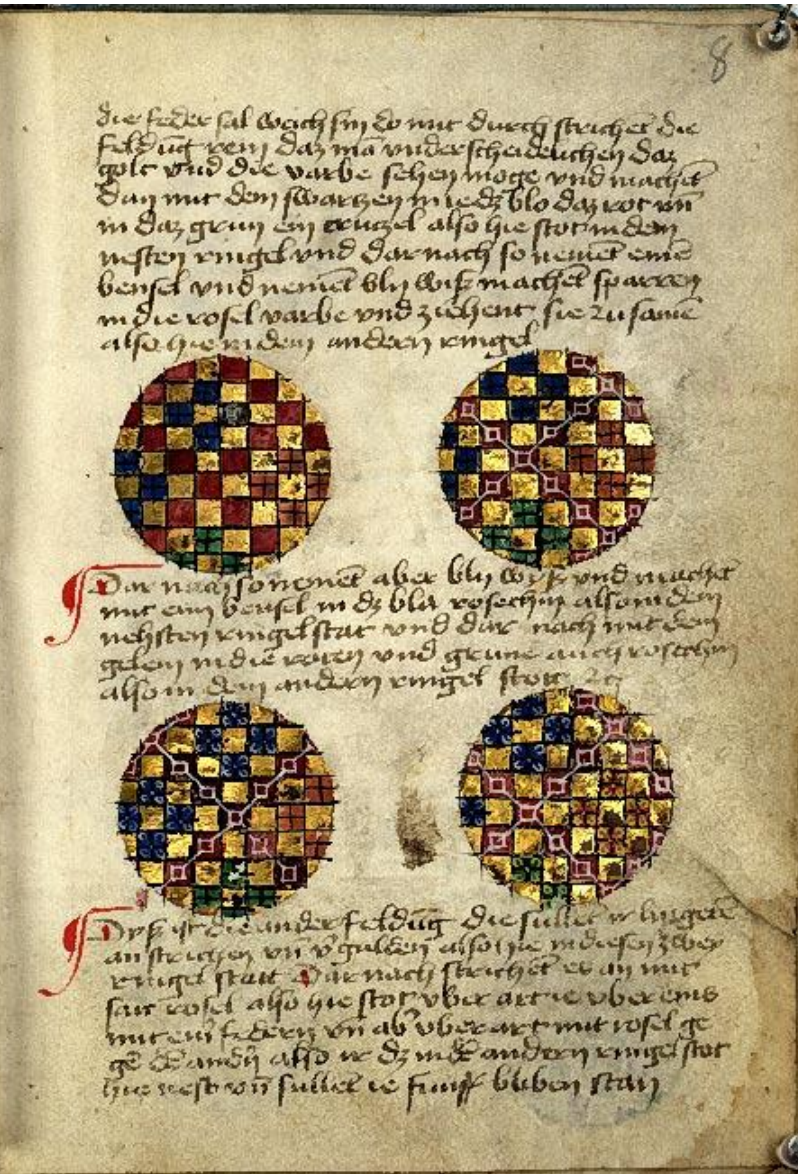 8
die feder sal weich sin do mit durch strichet die
feldūg reni daz mā vnderscheidenlichen daz
golt vnd die varbe sehen moge vnd machēt
dan mit dem swartzen in iedz blo daz rot vn̄
in daz grun ein crutzel also hie stot in dem
nesten ringel vnd dar nach so nemēt eine
bensel vnd nemēt bly wiß machēt sparren
in die rosel varbe vnd ziehent sie zu samē
also hie in dem andern ringel
Dar nach so nemēt aber bly wyß vnd machēt
mit eim bensel in dz bla rosechin also in dem
nehsten ringel stat vnd dar nach mit dem
gelem in die roten vnd grune auch rosechin
also in dem andern ringel stott
Dyß ist die ander feldūg die sullēt ir lingeren
an strichen vn̄ v'gulden also hie in diesen zwey
ringel statt Dar nach strichēt es an mit
satt rosel also hie stot vber art ie vber eins
mit eim federn vn̄ ab' vber art mit rosel ge
gē dē andn̄ also ir dz in dē andern ringel stot
hie nest vn̄ sullēt ie funff bliben stan